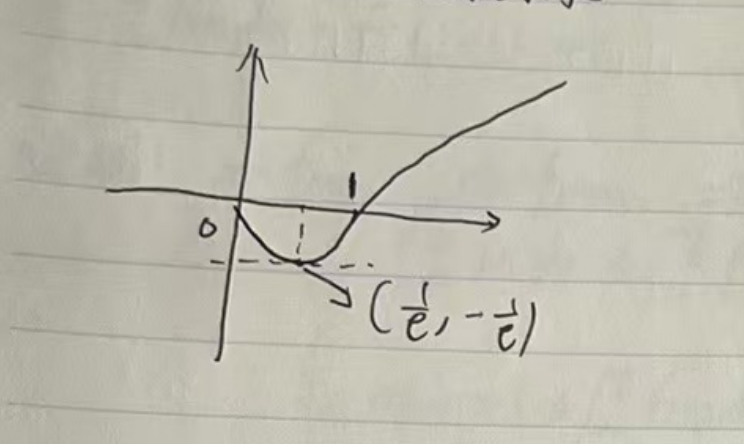 1
0
(1/e, -1/e)